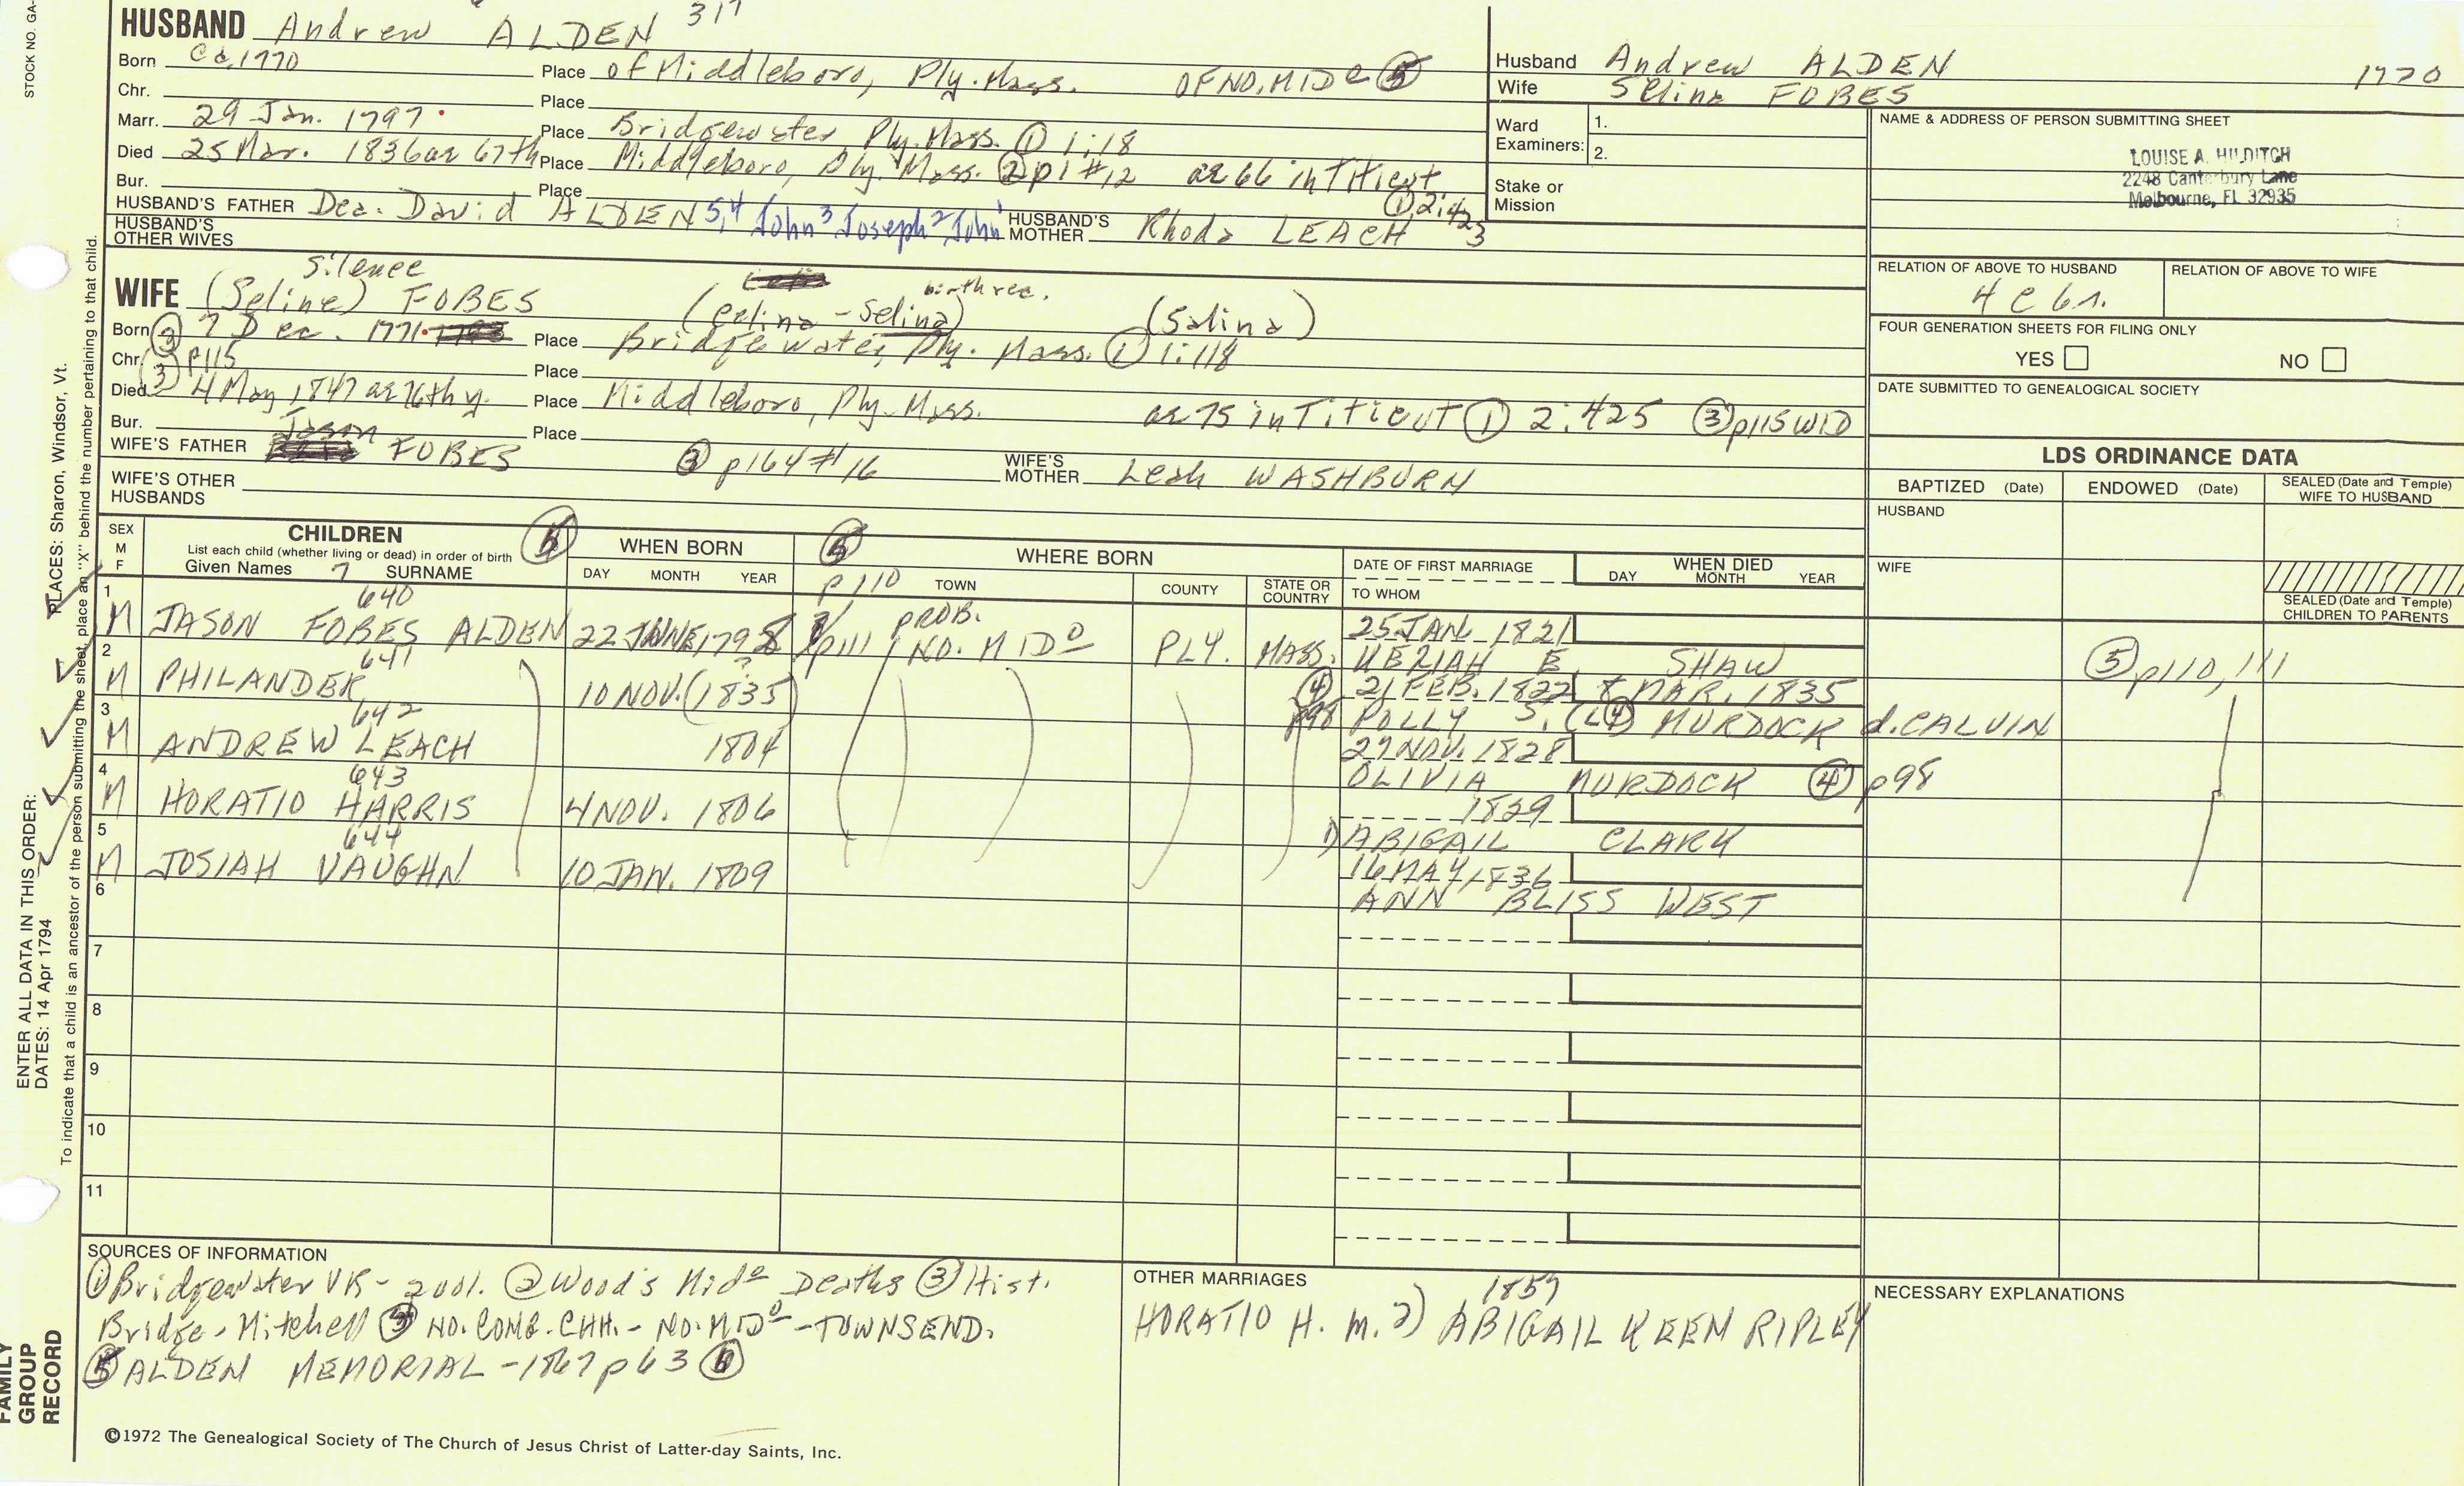 STOCK NO. GA-
HUSBAND Andrew ALDEN 317
Born Ca 1770 Place of Middleboro, Ply. Mass. OF NO. MIDo 5
Chr. Place
Marr. 29 Jan. 1797 Place Bridgewater Ply. Mass. ① 1:18
Died 25 Mar. 1836 ae 67th Place Middleboro, Ply. Mass. ② p1 #12 ae 66 in Titicut
Bur. Place ① 2:423
HUSBAND'S FATHER Dea. David ALDEN 5,4 John 3 Joseph 2 John 1 HUSBAND'S MOTHER Rhoda LEACH
HUSBAND'S OTHER WIVES
Husband Andrew ALDEN 1770
Wife Selina FOBES
Ward Examiners: 1.
2.
Stake or Mission
NAME & ADDRESS OF PERSON SUBMITTING SHEET
LOUISE A. HILDITCH
2248 Canterbury Lane
Melbourne, FL 32935
RELATION OF ABOVE TO HUSBAND RELATION OF ABOVE TO WIFE
4 C 6 r.
FOUR GENERATION SHEETS FOR FILING ONLY
YES NO
DATE SUBMITTED TO GENEALOGICAL SOCIETY
Silence birth rec.
WIFE (Seline) FOBES (Celina - Selina) (Salina)
Born ③ 7 Dec. 1771 Place Bridgewater, Ply. Mass. ① 1:118
Chr. p115 Place
Died ③ 4 May 1847 ae 76th y. Place Middleboro, Ply. Mass. ae 75 in TiTicuT ① 2:425 ③ p115 WID
Bur. Place
WIFE'S FATHER Jason FOBES ③ p164 #16 WIFE'S MOTHER Leah WASHBURN
WIFE'S OTHER HUSBANDS
LDS ORDINANCE DATA
BAPTIZED (Date) ENDOWED (Date) SEALED (Date and Temple) WIFE TO HUSBAND
HUSBAND
WIFE
SEALED (Date and Temple) CHILDREN TO PARENTS
SEX M F
CHILDREN
List each child (whether living or dead) in order of birth
Given Names 7 SURNAME
WHEN BORN
DAY MONTH YEAR
WHERE BORN
p110 TOWN COUNTY STATE OR COUNTRY
DATE OF FIRST MARRIAGE
TO WHOM
WHEN DIED
DAY MONTH YEAR
640
1 M JASON FOBES ALDEN 22 JUNE 1798 p111 PROB. NO. MIDo PLY. MASS. 25 JAN. 1821
KERIAH E. SHAW ⑤ p110, 111
641
2 M PHILANDER 10 NOV. (1835) ? ④ p98 21 FEB. 1822 8 MAR. 1835
POLLY S. (L ④) MURDOCK d. CALVIN
642
3 M ANDREW LEACH 1804 27 NOV. 1828
OLIVIA MURDOCK ④ p98
643
4 M HORATIO HARRIS 4 NOV. 1806 1829
1) ABIGAIL CLARK
644
5 M JOSIAH VAUGHN 10 JAN. 1809 16 MAY 1836
ANN BLISS WEST
6
7
8
9
10
11
SOURCES OF INFORMATION
① Bridgewater VR - 2vol. ② Wood's Mido Deaths ③ Hist.
Bridge - Mitchell ④ NO. CONG. CHH. - NO. MIDo - TOWNSEND.
⑤ ALDEN MEMORIAL - 1867 p63
OTHER MARRIAGES
1859
HORATIO H. m. 2) ABIGAIL KEEN RIPLEY
NECESSARY EXPLANATIONS
©1972 The Genealogical Society of The Church of Jesus Christ of Latter-day Saints, Inc.
ENTER ALL DATA IN THIS ORDER:
DATES: 14 Apr 1794 PLACES: Sharon, Windsor, Vt.
To indicate that a child is an ancestor of the person submitting the sheet, place an "X" behind the number pertaining to that child.
FAMILY
GROUP
RECORD